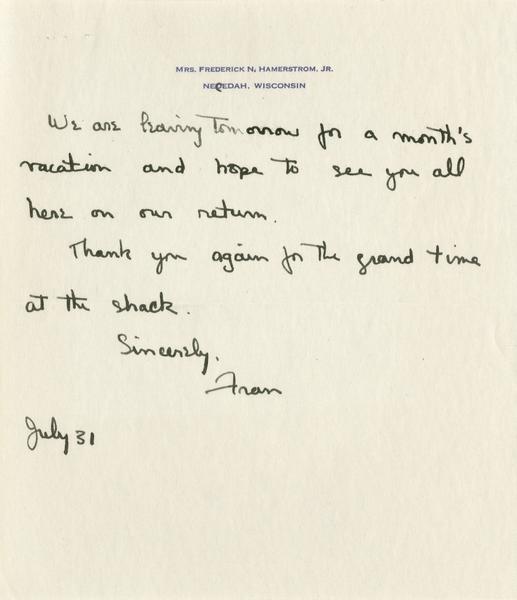 MRS. FREDERICK N. HAMERSTROM, JR.
NECEDAH, WISCONSIN
We are leaving tomorrow for a month's
vacation and hope to see you all
here on our return.
Thank you again for the grand time
at the shack.
Sincerely,
Fran
July 31